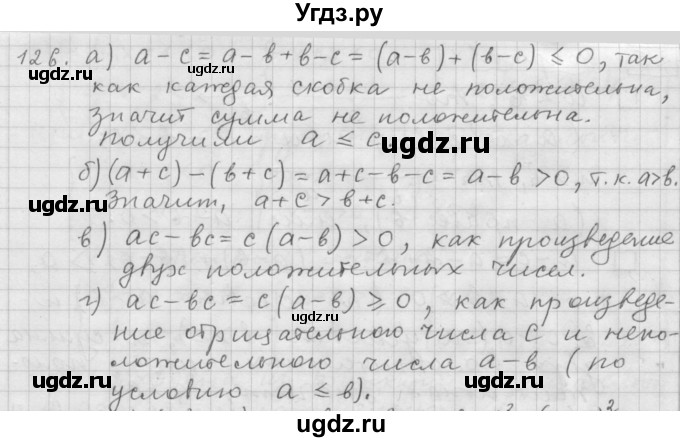 Угдз.ру
126. а) a - c = a - в + в - c = (a-в) + (в-c) ≤ 0, так
как каждая скобка не положительна,
значит сумма не положительна.
Получили a ≤ c
ugdz.ru ugdz.ru
б) (a+c) - (в+c) = a+c-в-c = a-в > 0, т.к. a>в.
Значит, a+c > в+c.
ugdz.ru
в) ac - вc = c(a-в) > 0, как произведение
двух положительных чисел.
ugdz.ru
г) ac - вc = c(a-в) ⩾ 0, как произведе-
ugdz.ru
ние отрицательного числа c и непо-
ложительного числа a-в (по
ugdz.ru ugdz.ru
условию a ≤ в).
ugdz.ru